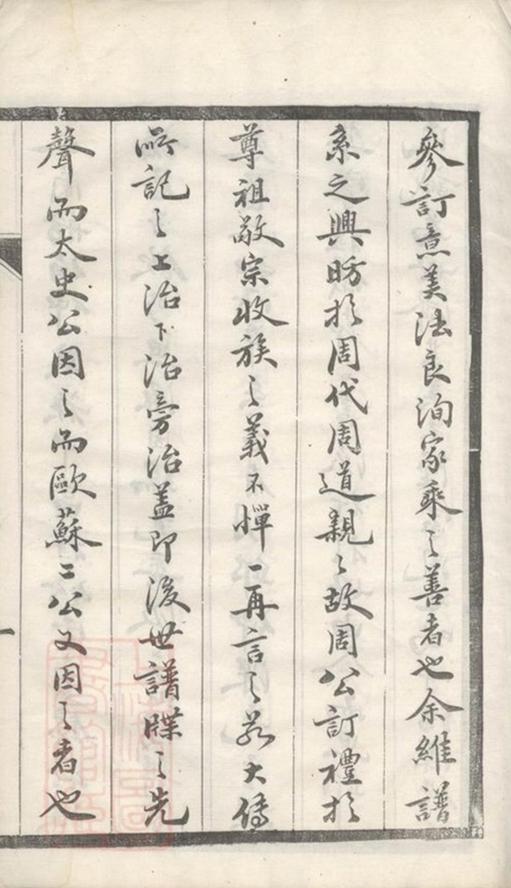 參訂意美法良洵家乘之善者也余維譜
系之興昉於周代周道親親故周公訂禮於
尊祖敬宗收族之義不憚一再言之若大傳
所記之上治下治旁治蓋即後世譜牒之先
聲而太史公因之而歐蘇二公又因之者也